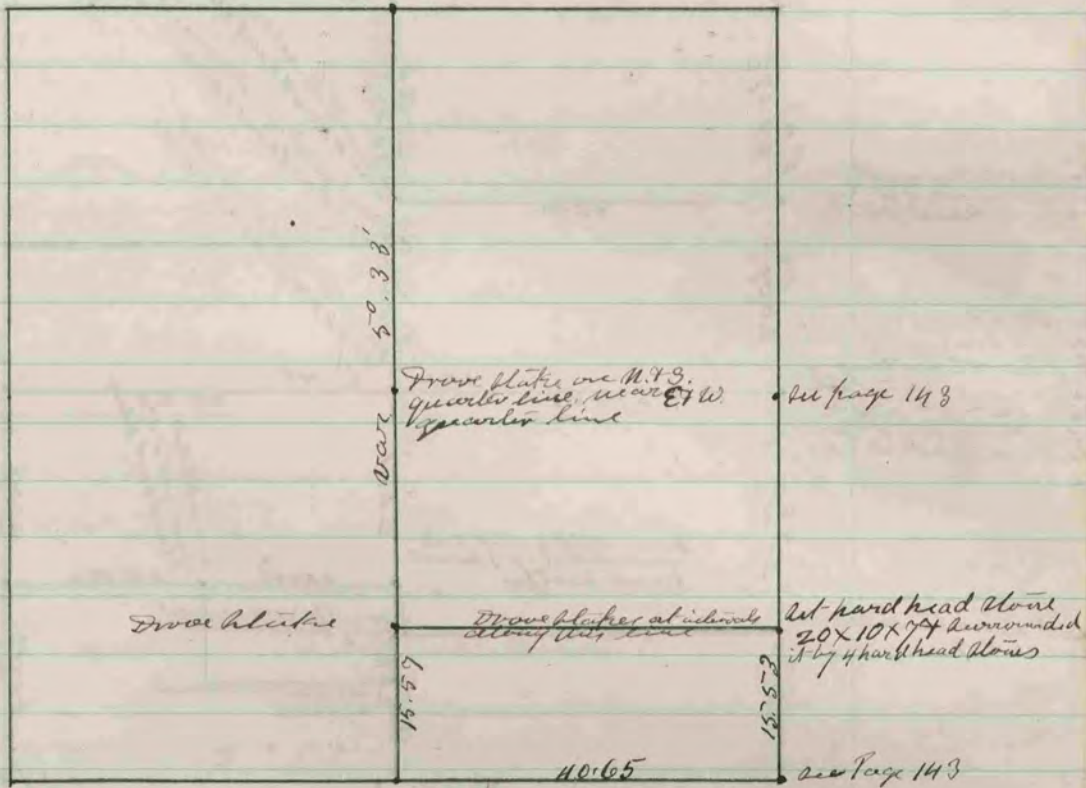 Var 5°.33'
Drove Stake on N. & S.
quarter line, near E & W.
quarter line
See page 143
Drove Stake
Drove Stakes at intervals
along this line
Set hard head Stone
20 X 10 X 7 & surrounded
it by 4 hard head Stones
15.57
15.53
40.65
See Page 143